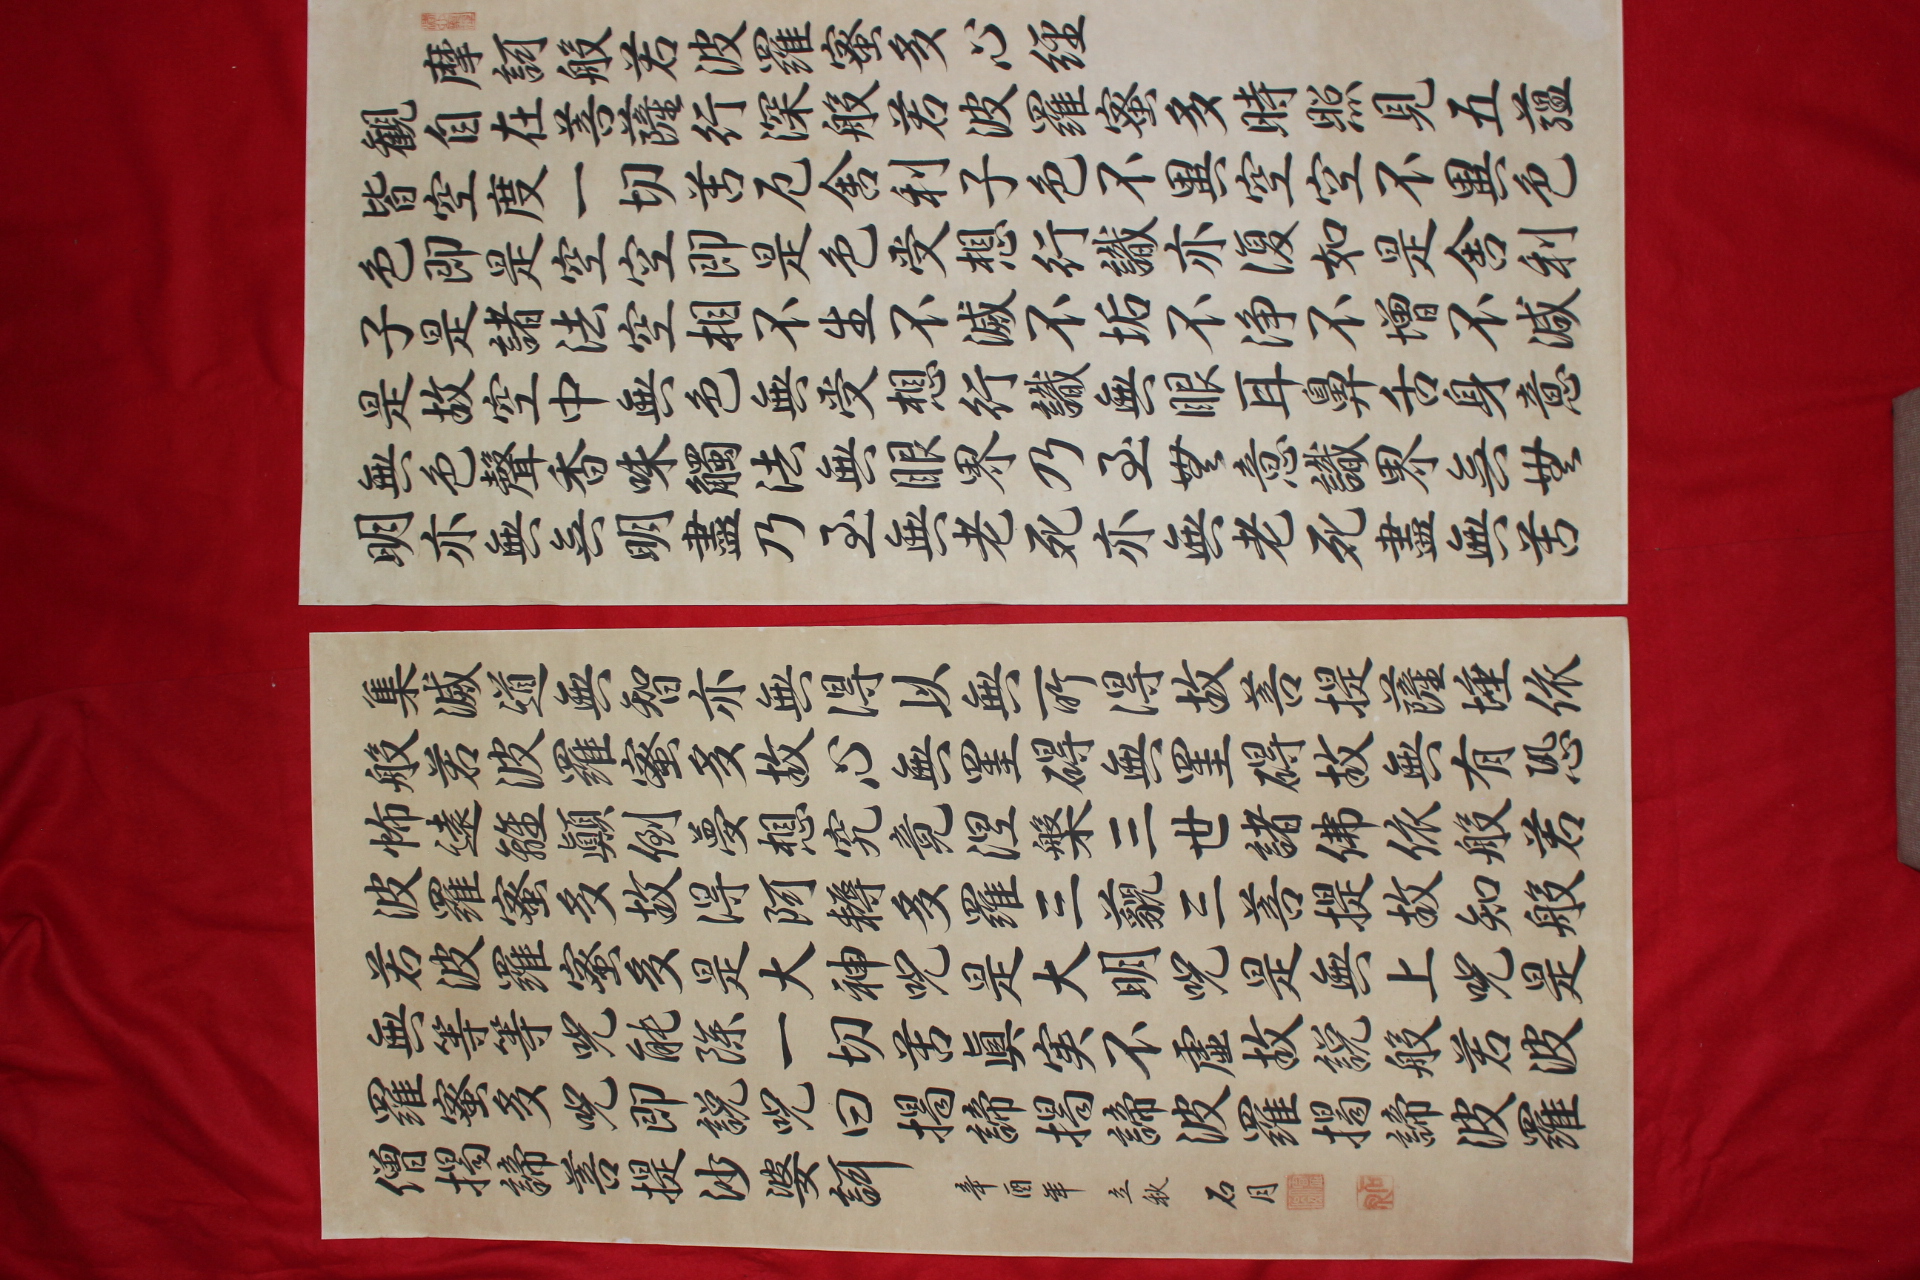 摩訶般若波羅蜜多心経
観自在菩薩行深般若波羅蜜多時照見五蘊
皆空度一切苦厄舍利子色不異空空不異色
色即是空空即是色受想行識亦復如是舍利
子是諸法空相不生不滅不垢不浄不増不減
是故空中無色無受想行識無眼耳鼻舌身意
無色聲香味觸法無眼界乃至無意識界無無
明亦無無明盡乃至無老死亦無老死盡無苦
集滅道無智亦無得以無所得故菩提薩埵依
般若波羅蜜多故心無罣碍無罣碍故無有恐
怖遠離顛倒夢想究竟涅槃三世諸佛依般若
波羅蜜多故得阿耨多羅三藐三菩提故知般
若波羅蜜多是大神呪是大明呪是無上呪是
無等等呪能除一切苦眞実不虚故説般若波
羅蜜多呪即説呪曰揭諦揭諦波羅揭諦波羅
僧揭諦菩提沙婆訶
辛酉年 立秋 石月